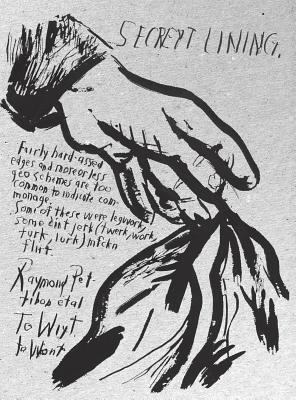 SECREYT LINING.
Fairly hard-assed
edges and more or less
geo schemes are too
common to indicate com-
monage.
Some of these were legwork,
some dint jerk (twerk, work,
turk, lurk)
flirt.
Raymond Pet-
tibon etal
To Wiyt
to Wont